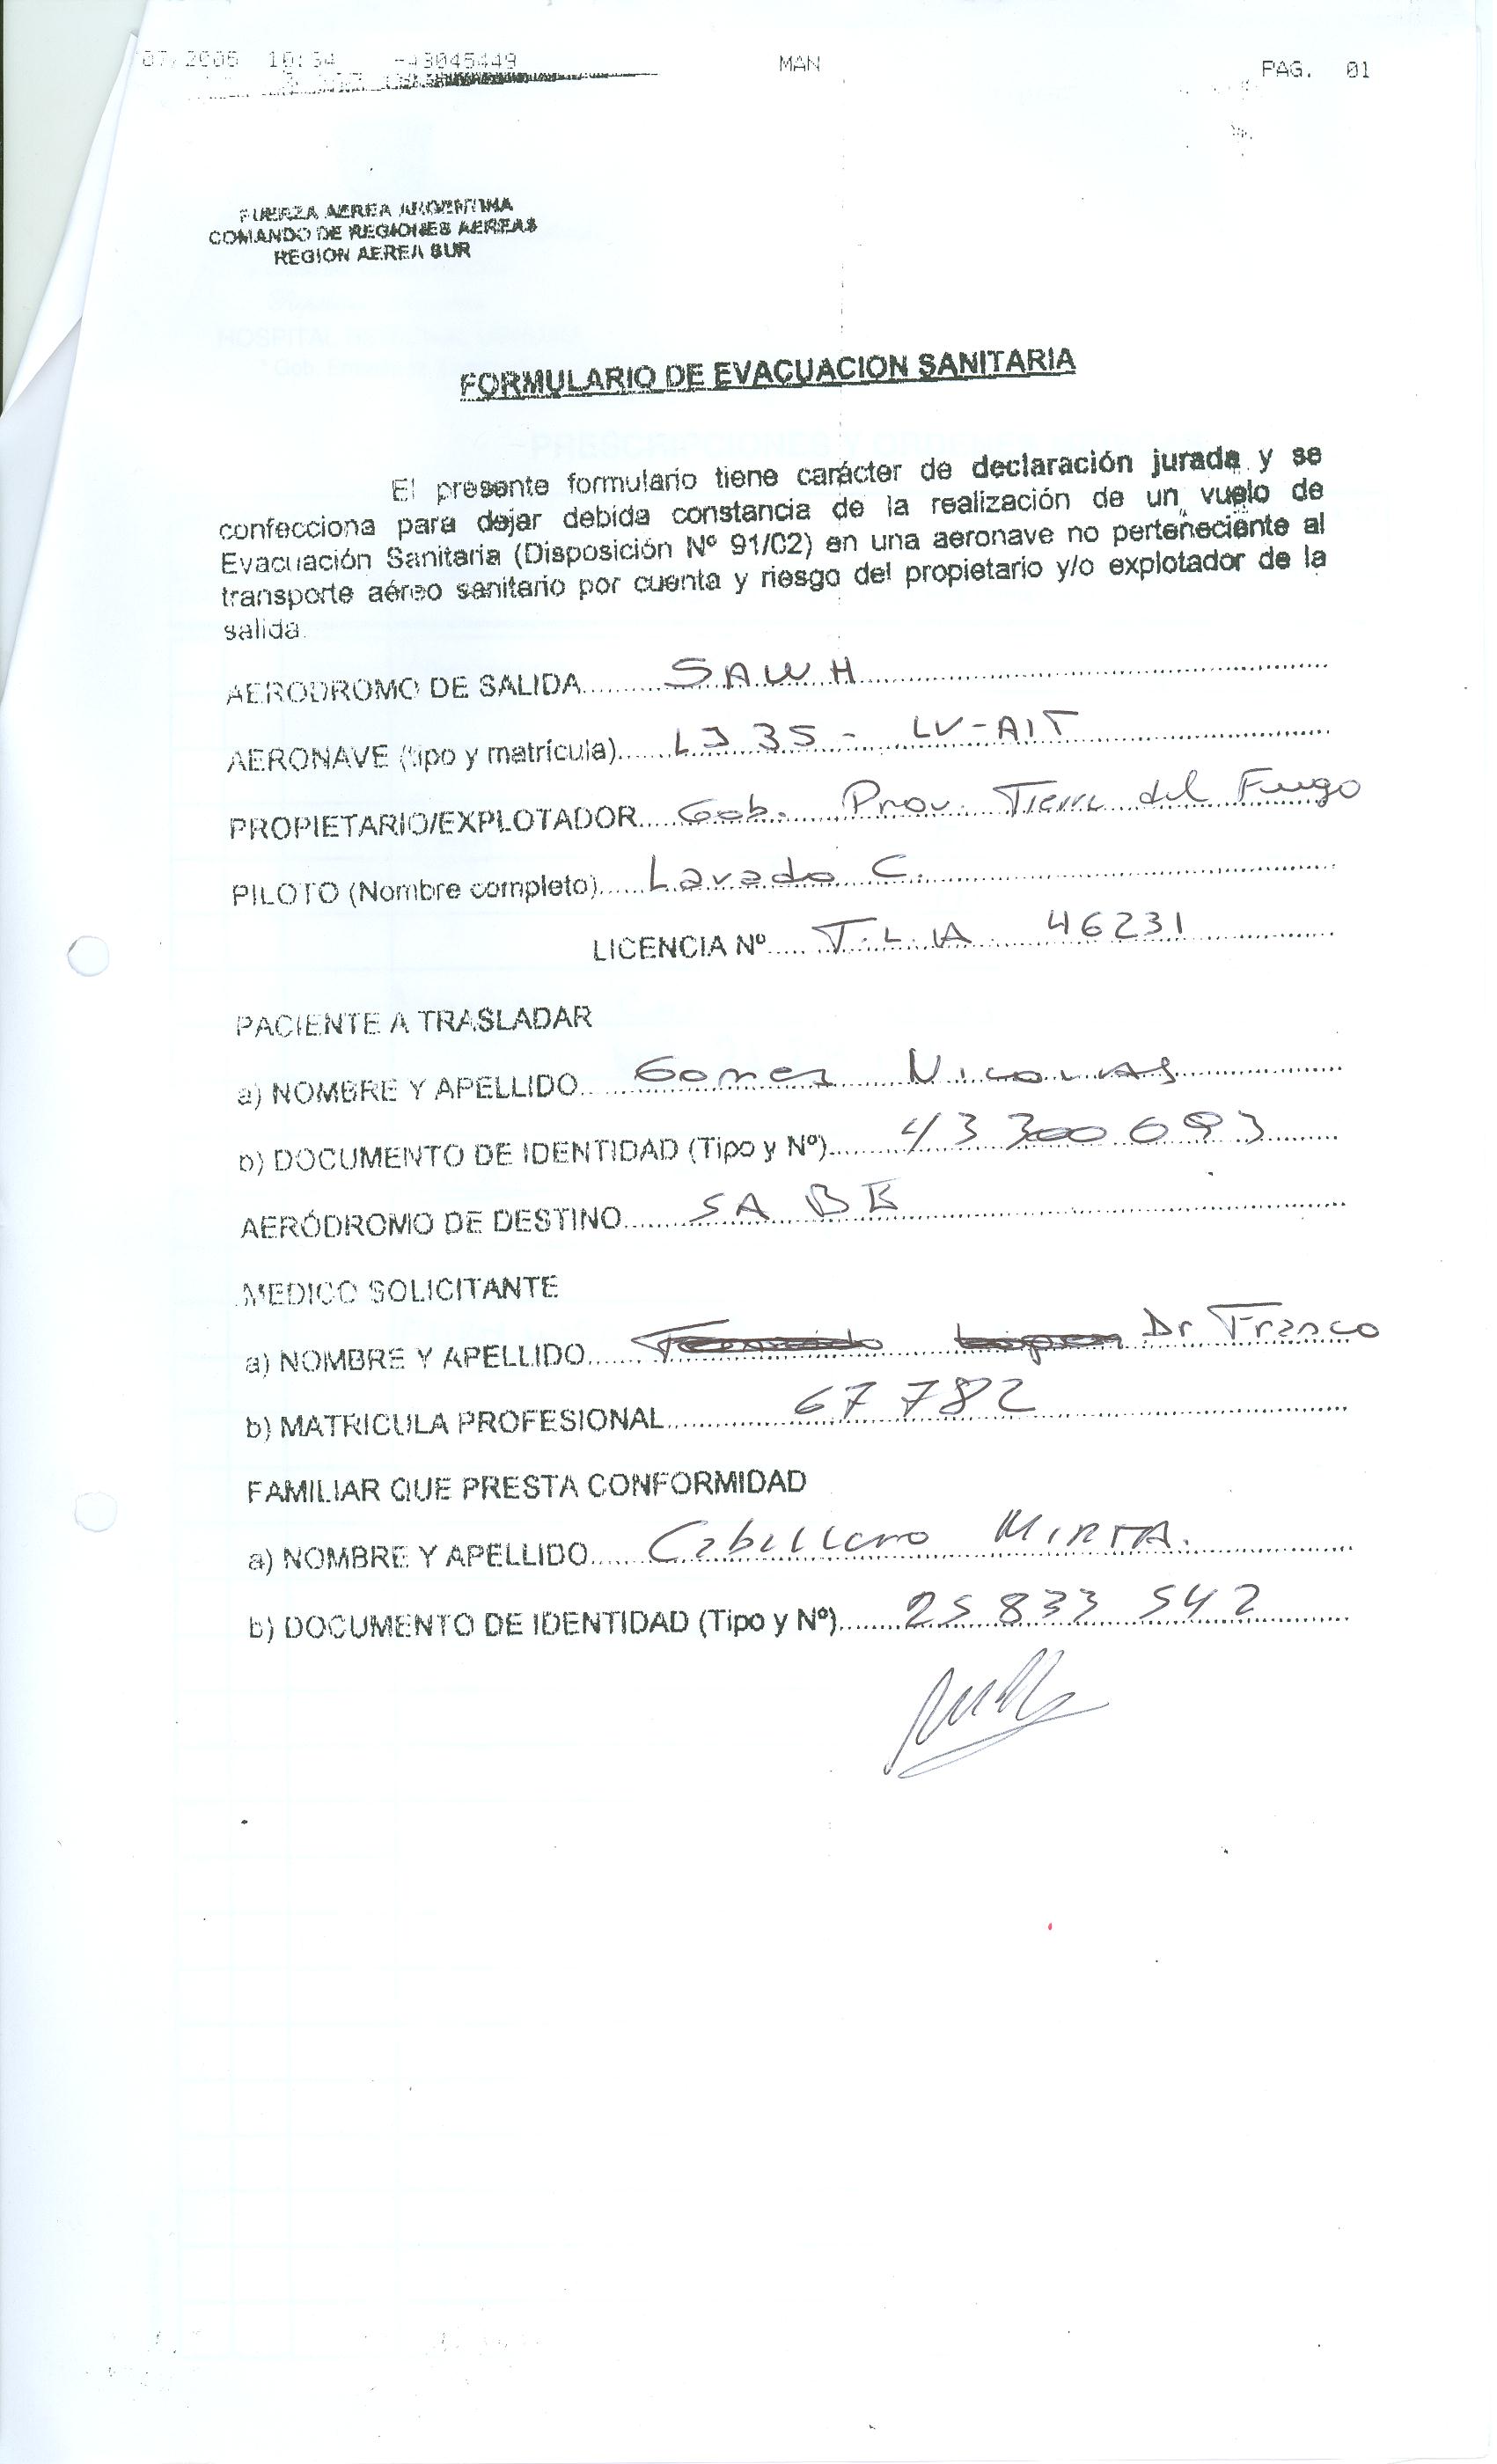 07/2005 10:34 -43045449 MAN PAG. 01
FUERZA AEREA ARGENTINA
COMANDO DE REGIONES AEREAS
REGION AEREA SUR
FORMULARIO DE EVACUACION SANITARIA
El presente formulario tiene carácter de declaración jurada y se
confecciona para dejar debida constancia de la realización de un vuelo de
Evacuación Sanitaria (Disposición Nº 91/02) en una aeronave no perteneciente al
transporte aéreo sanitario por cuenta y riesgo del propietario y/o explotador de la
salida.
AERODROMO DE SALIDA SAWH
AERONAVE (tipo y matrícula) LJ 35 - LV-AIT
PROPIETARIO/EXPLOTADOR Gob. Prov. Tierra del Fuego
PILOTO (Nombre completo) Lavado C.
LICENCIA Nº T.L.A 46231
PACIENTE A TRASLADAR
a) NOMBRE Y APELLIDO Gomes Nicolas
b) DOCUMENTO DE IDENTIDAD (Tipo y Nº) 43 300 693
AERÓDROMO DE DESTINO SABE
MEDICO SOLICITANTE
a) NOMBRE Y APELLIDO Dr Franco
b) MATRICULA PROFESIONAL 67 782
FAMILIAR QUE PRESTA CONFORMIDAD
a) NOMBRE Y APELLIDO Caballero MIRTA.
b) DOCUMENTO DE IDENTIDAD (Tipo y Nº) 25 833 542